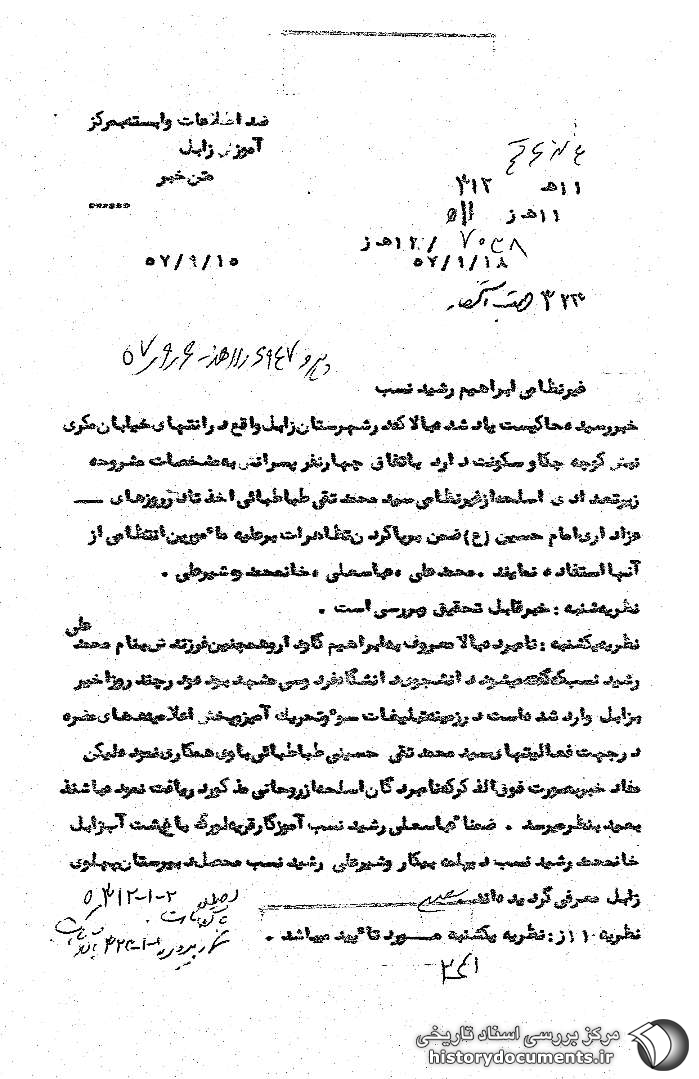 ضد اطلاعات وابسته بمرکز
آموزش زابل
متن خبر
۱۱هـ ۳۱۲
۱۱هـ ز
۷۰۳۸ / ۱۲هـ ز
۵۷/۹/۱۸
۵۷/۹/۱۵
۳۲۴
غیرنظامی ابراهیم رشید نسب
خبر رسیده حاکیست یاد شده بالا که در شهرستان زابل واقع در انتهای خیابان مکری
نبش کوچه چکاو سکونت دارد باتفاق چهارنفر پسرانش به مشخصات مشروحه
زیر تعدادی اسلحه از غیرنظامی سید محمد تقی طباطبائی اخذ تا در روزهای
عزاداری امام حسین (ع) ضمن برپا کردن تظاهرات برعلیه مأمورین انتظامی از
آنها استفاده نمایند . محمد علی ، عباسعلی ، خانمحمد و شیرعلی .
نظریه شنبه : خبر قابل تحقیق و بررسی است .
نظریه یکشنبه : نامبرده بالا معروف به ابراهیم گاودار و همچنین فرزندش بنام محمد علی
رشید نسب که گفته میشود دانشجوی دانشگاه فردوسی مشهد بوده و در چند روز اخیر
بزابل وارد شده است در زمینه تبلیغات سوء و تحریک آمیز و پخش اعلامیه های مضره
در جهت فعالیتهای سید محمد تقی حسینی طباطبائی با وی همکاری نموده لیکن
مفاد خبر بصورت فوق الذکر که نامبردگان اسلحه از روحانی مذکور دریافت نموده باشند
بعید بنظر میرسد . ضمناً عباسعلی رشید نسب آموزگار قریه لورگ باغ پشت آب زابل
خانمحمد رشید نسب دیپلمه بیکار و شیرعلی رشید نسب محصل دبیرستان پهلوی
زابل معرفی گردیده اند
۳۱۲-۱-۲
نظریه ۱۱ز : نظریه یکشنبه مورد تأیید میباشد .
مرکز بررسی اسناد تاریخی
historydocuments.ir